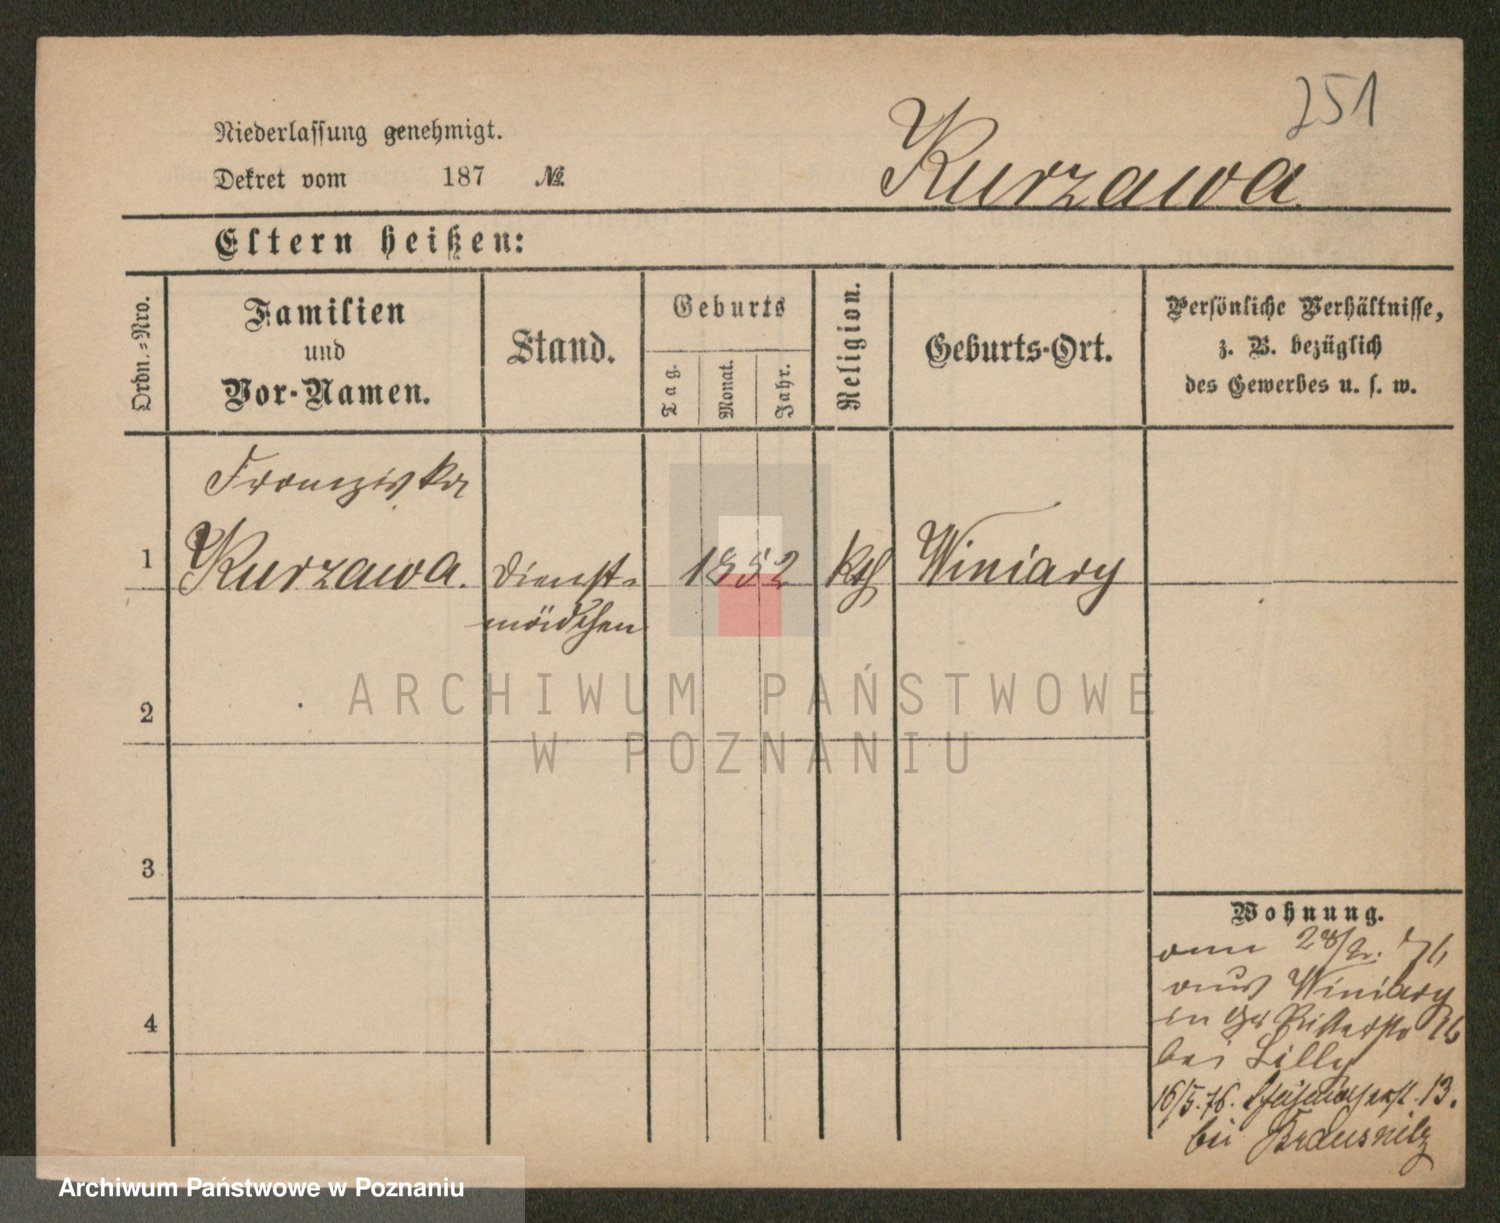 251
Niederlassung genehmigt.
Dekret vom 187 №
Kurzawa
Eltern heißen:
Ordn.=Nro.
Familien
und
Vor-Namen.
Stand.
Geburts
Tag.
Monat.
Jahr.
Religion.
Geburts-Ort.
Persönliche Verhältnisse,
z. B. bezüglich
des Gewerbes u. s. w.
Franziska
1 Kurzawa. Dienst= 1852 kth Winiary
mädchen
2
3
4
Wohnung.
76
aus Winiary
in 16
bei Lilly
16/5.76. 13.
bei
ARCHIWUM PAŃSTWOWE
W POZNANIU
Archiwum Państwowe w Poznaniu